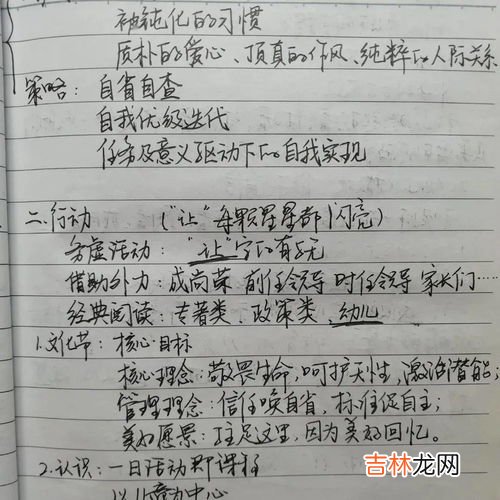 被钝化的习惯
质朴的爱心、顶真的作风、纯粹的人际关系
策略：自省自查
自我优级迭代
任务及意义驱动下的自我实现
二.行动 （"让"每颗星星都闪亮）
务虚活动："让"字的有与无
借助外力：成尚荣 前任领导 时任领导 家长们……
经典阅读：专著类、政策类、幼儿
1.文化节：核心目标
核心理念：敬畏生命，呵护天性，激活潜能；
管理理念：信任唤自省，标准促自主；
美好愿景：驻足这里，因为美好回忆。
2.认识：一日活动即课程
以儿童为中心
吉林龙网